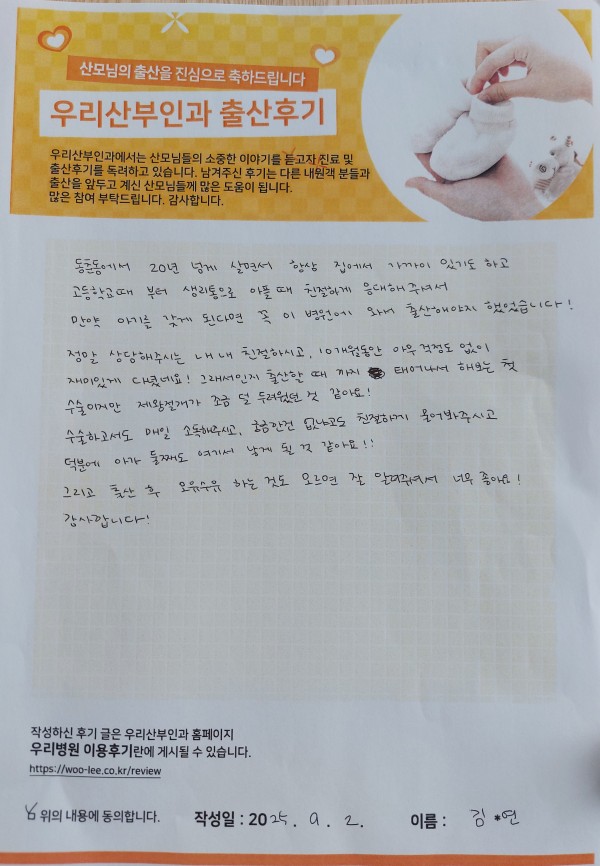 산모님의 출산을 진심으로 축하드립니다
우리산부인과 출산후기
우리산부인과에서는 산모님들의 소중한 이야기를 듣고자 진료 및
출산후기를 독려하고 있습니다. 남겨주신 후기는 다른 내원객 분들과
출산을 앞두고 계신 산모님들께 많은 도움이 됩니다.
많은 참여 부탁드립니다. 감사합니다.
동춘동에서 20년 넘게 살면서 항상 집에서 가까이 있기도 하고
고등학교때 부터 생리통으로 아플 때 친절하게 응대해주셔서
만약 아기를 갖게 된다면 꼭 이 병원에 와서 출산해야지 했었습니다!
정말 상담해주시는 내내 친절하시고, 10개월동안 아무 걱정도 없이
재미있게 다녔네요! 그래서인지 출산할 때 까지 태어나서 해보는 첫
수술이지만 제왕절개가 조금 덜 두려웠던 것 같아요!
수술하고서도 매일 소독해주시고, 궁금한건 없냐고도 친절하게 물어봐주시고
덕분에 아가 둘째도 여기서 낳게 될 것 같아요!!
그리고 출산 후 모유수유 하는 것도 모르면 잘 알려주셔서 너무 좋아요!
감사합니다!
작성하신 후기 글은 우리산부인과 홈페이지
우리병원 이용후기란에 게시될 수 있습니다.
https://woo-lee.co.kr/review
위의 내용에 동의합니다. 작성일 : 2025. 9. 2. 이름 : 김*연